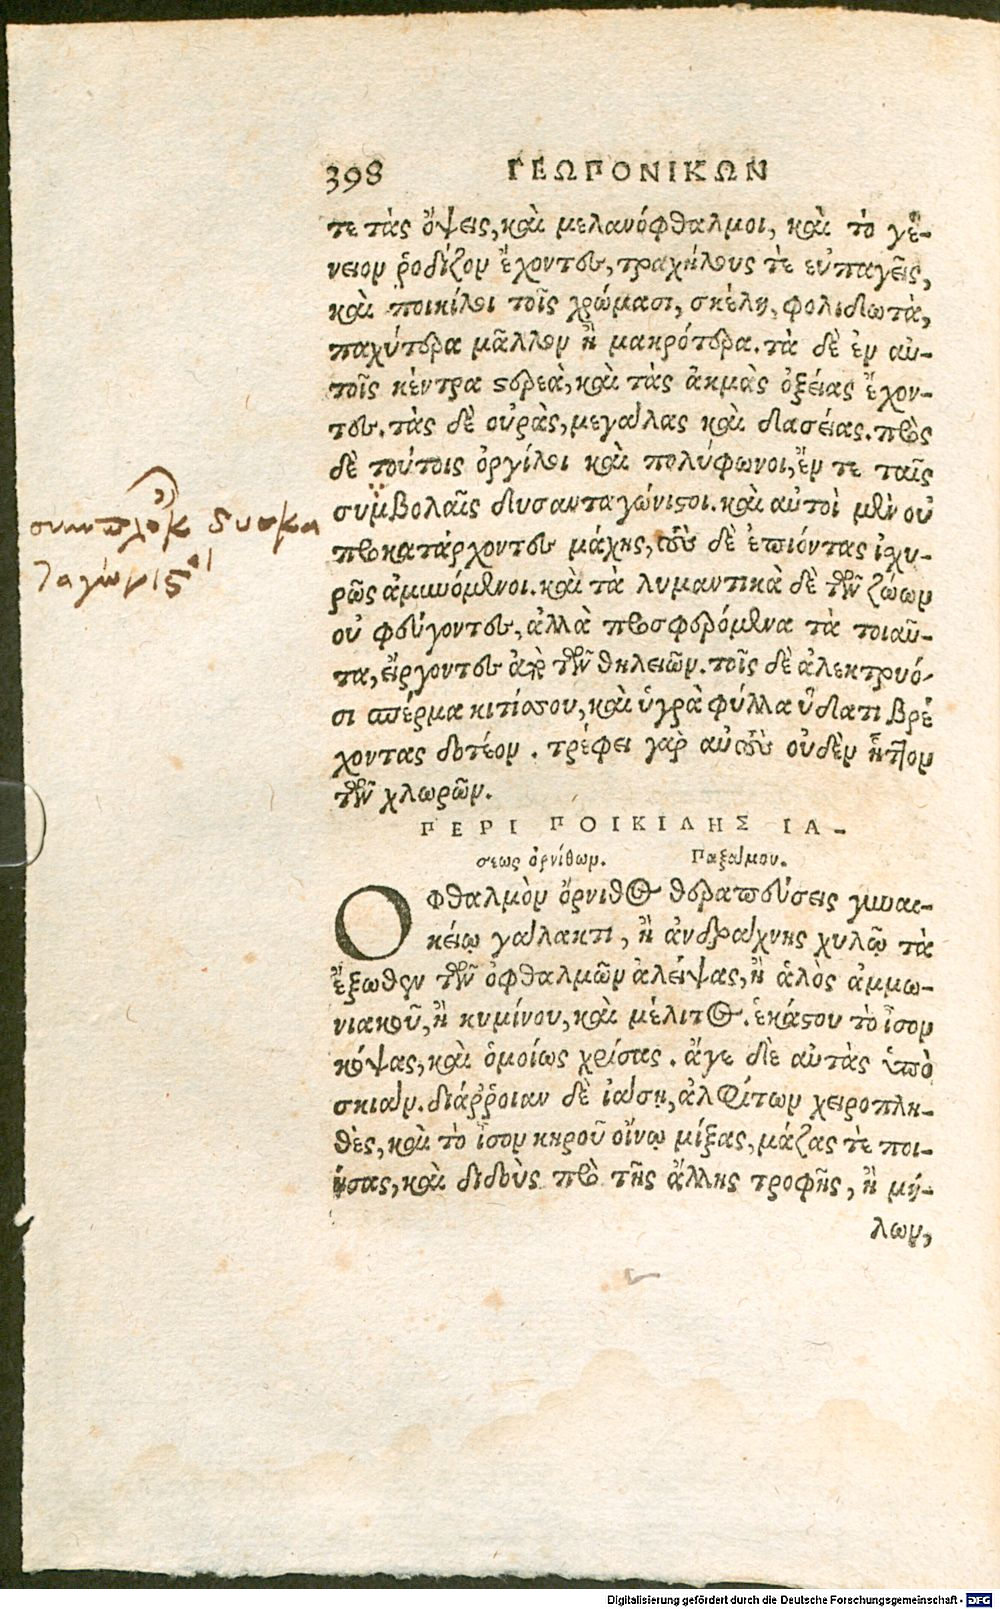 398 ΓΕΩΠΟΝΙΚΩΝ
τε τὰς ὄψεις, καὶ μελανόφθαλμοι, καὶ τὸ γέ-
νειον ῥοδίζον ἔχοντες, τραχήλους τὲ εὐπαγεῖς,
καὶ ποικίλοι τοῖς χρώμασι, σκέλη, φολιδωτὰ,
παχύτερα μᾶλλον ἢ μακρότερα. τὰ δὲ ἐν αὐ-
τοῖς κέντρα στερεὰ, καὶ τὰς ἀκμὰς ὀξείας ἔχον-
τες. τὰς δὲ οὐρὰς, μεγάλας καὶ δασείας. πρὸς
δὲ τούτοις ὀργίλοι καὶ πολύφωνοι, ἔν τε ταῖς
συμβολαῖς δυσανταγώνιστοι. καὶ αὐτοὶ μὲν οὐ
προκατάρχοντες μάχης, τοὺς δὲ ἐπιόντας ἰχυ-
ρῶς ἀμυνόμενοι. καὶ τὰ λυμαντικὰ δὲ τῶν ζώων
οὐ φεύγοντες, ἀλλὰ προσφερόμενα τὰ τοιαῦ-
τα, εἴργοντες ἀπὸ τῶν θηλειῶν. τοῖς δὲ ἀλεκτρυό-
σι σπέρμα κιτίσου, καὶ ὑγρὰ φύλλα ὕδατι βρέ
χοντας δοτέον. τρέφει γὰρ αὐτοὺς οὐδὲν ἧττον
τῶν χλωρῶν.
συμπλοκ
ΠΕΡΙ ΠΟΙΚΙΛΗΣ ΙΑ-
σεως ὀρνίθων. Παξάμου.
Οφθαλμὸν ὄρνιθος θεραπεύσεις γυναι-
κείῳ γάλακτι, ἢ ἀνδράχνης χυλῷ τὰ
ἔξωθεν τῶν ὀφθαλμῶν ἀλείψας, ἢ ἁλὸς ἀμμω-
νιακοῦ, ἢ κυμίνου, καὶ μέλιτος. ἑκάστου τὸ ἶσον
κόψας, καὶ ὁμοίως χρίσας. ἄγε δὲ αὐτὰς ὑπὸ
σκιάν. διάῤῥοιαν δὲ ἰάση, ἀλφίτων χειροπλη-
θὲς, καὶ τὸ ἶσον κηροῦ οἴνῳ μίξας, μάζας τὲ ποι-
ήσας, καὶ διδοὺς πρὸ τῆς ἄλλης τροφῆς, ἢ μή-
λων,
Digitalisierung gefördert durch die Deutsche Forschungsgemeinschaft - DFG